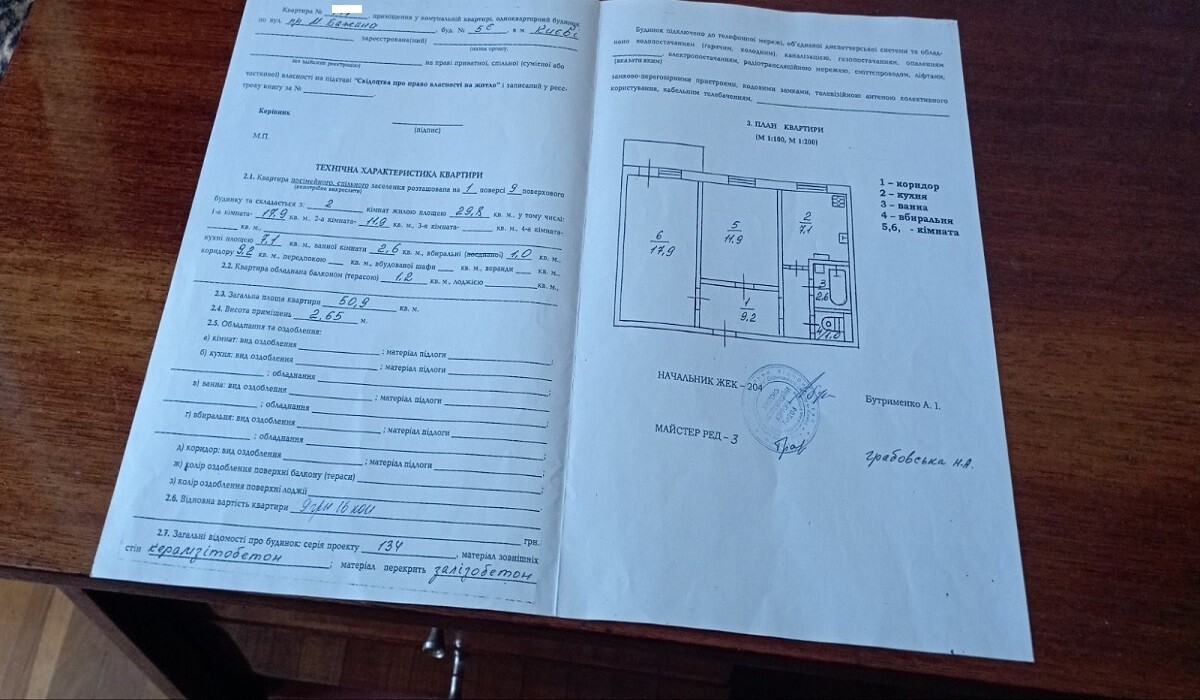 Квартира № , приміщення у комунальній квартирі, одноквартирний будинок
по вул. пр. М Бажана , буд. № 5є , в м. Києві
зареєстрована(ний)
(назва органу,
на праві приватної, спільної (сумісної або
що здійснює реєстрацію)
часткової) власності на підставі "Свідоцтва про право власності на житло" і записаний у реєс-
трову книгу за № .
Керівник
(підпис)
М.П.
ТЕХНІЧНА ХАРАКТЕРИСТИКА КВАРТИРИ
2.1. Квартира посімейного, спільного заселення розташована на 1 поверсі 9 поверхового
(непотрібне викреслити)
будинку та складається з: 2 кімнат жилою площею 29,8 кв. м., у тому числі:
1-а кімната- 17,9 кв. м., 2-а кімната- 11,9 кв. м., 3-я кімната- кв. м., 4-а кімната-
кв. м.,
кухні площею 7,1 кв. м., ванної кімнати 2,6 кв. м., вбиральні (поєднаної) 1,0 кв. м.,
коридору 9,2 кв. м., передпокою кв. м., вбудованої шафи кв. м., веранди кв. м.,
2.2. Квартира обладнана балконом (терасою) 1,2 кв. м., лоджією кв. м.,
2.3. Загальна площа квартири 50,9 кв. м.
2.4. Висота приміщень 2,65 м.
2.5. Обладнання та оздоблення:
а) кімнат: вид оздоблення ; матеріал підлоги ;
б) кухня: вид оздоблення ; матеріал підлоги
; обладнання ;
в) ванна: вид оздоблення ; матеріал підлоги
; обладнання ;
г) вбиральня: вид оздоблення ; матеріал підлоги
; обладнання ;
д) коридор: вид оздоблення ; матеріал підлоги ;
ж) колір оздоблення поверхні балкону (тераси) ;
з) колір оздоблення поверхні лоджії
2.6. Відновна вартість квартири 9 грн 16 коп
грн.
2.7. Загальні відомості про будинок: серія проекту 134 , матеріал зовнішніх
стін керамзітобетон ; матеріал перекрить залізобетон
Будинок підключено до телефонної мережі, об'єднаної диспетчерської системи та облад-
нано водопостачанням (гарячим, холодним), каналізацією, газопостачанням, опаленням
електропостачанням, радіотрансляційною мережею, сміттєпроводом, ліфтами,
(вказати яким)
замково-переговорними пристроями, кодовими замками, телевізійною антеною колективного
користування, кабельним телебаченням,
3. ПЛАН КВАРТИРИ
(М 1:100, М 1:200)
1 – коридор
2 – кухня
3 – ванна
4 – вбиральня
5,6, - кімната
6
17,9
5
11,9
2
7,1
1
9.2
3
2,6
4/1,0
НАЧАЛЬНИК ЖЕК – 204
Бутрименко А. І.
МАЙСТЕР РЕД – 3
Грабовська Н.А.